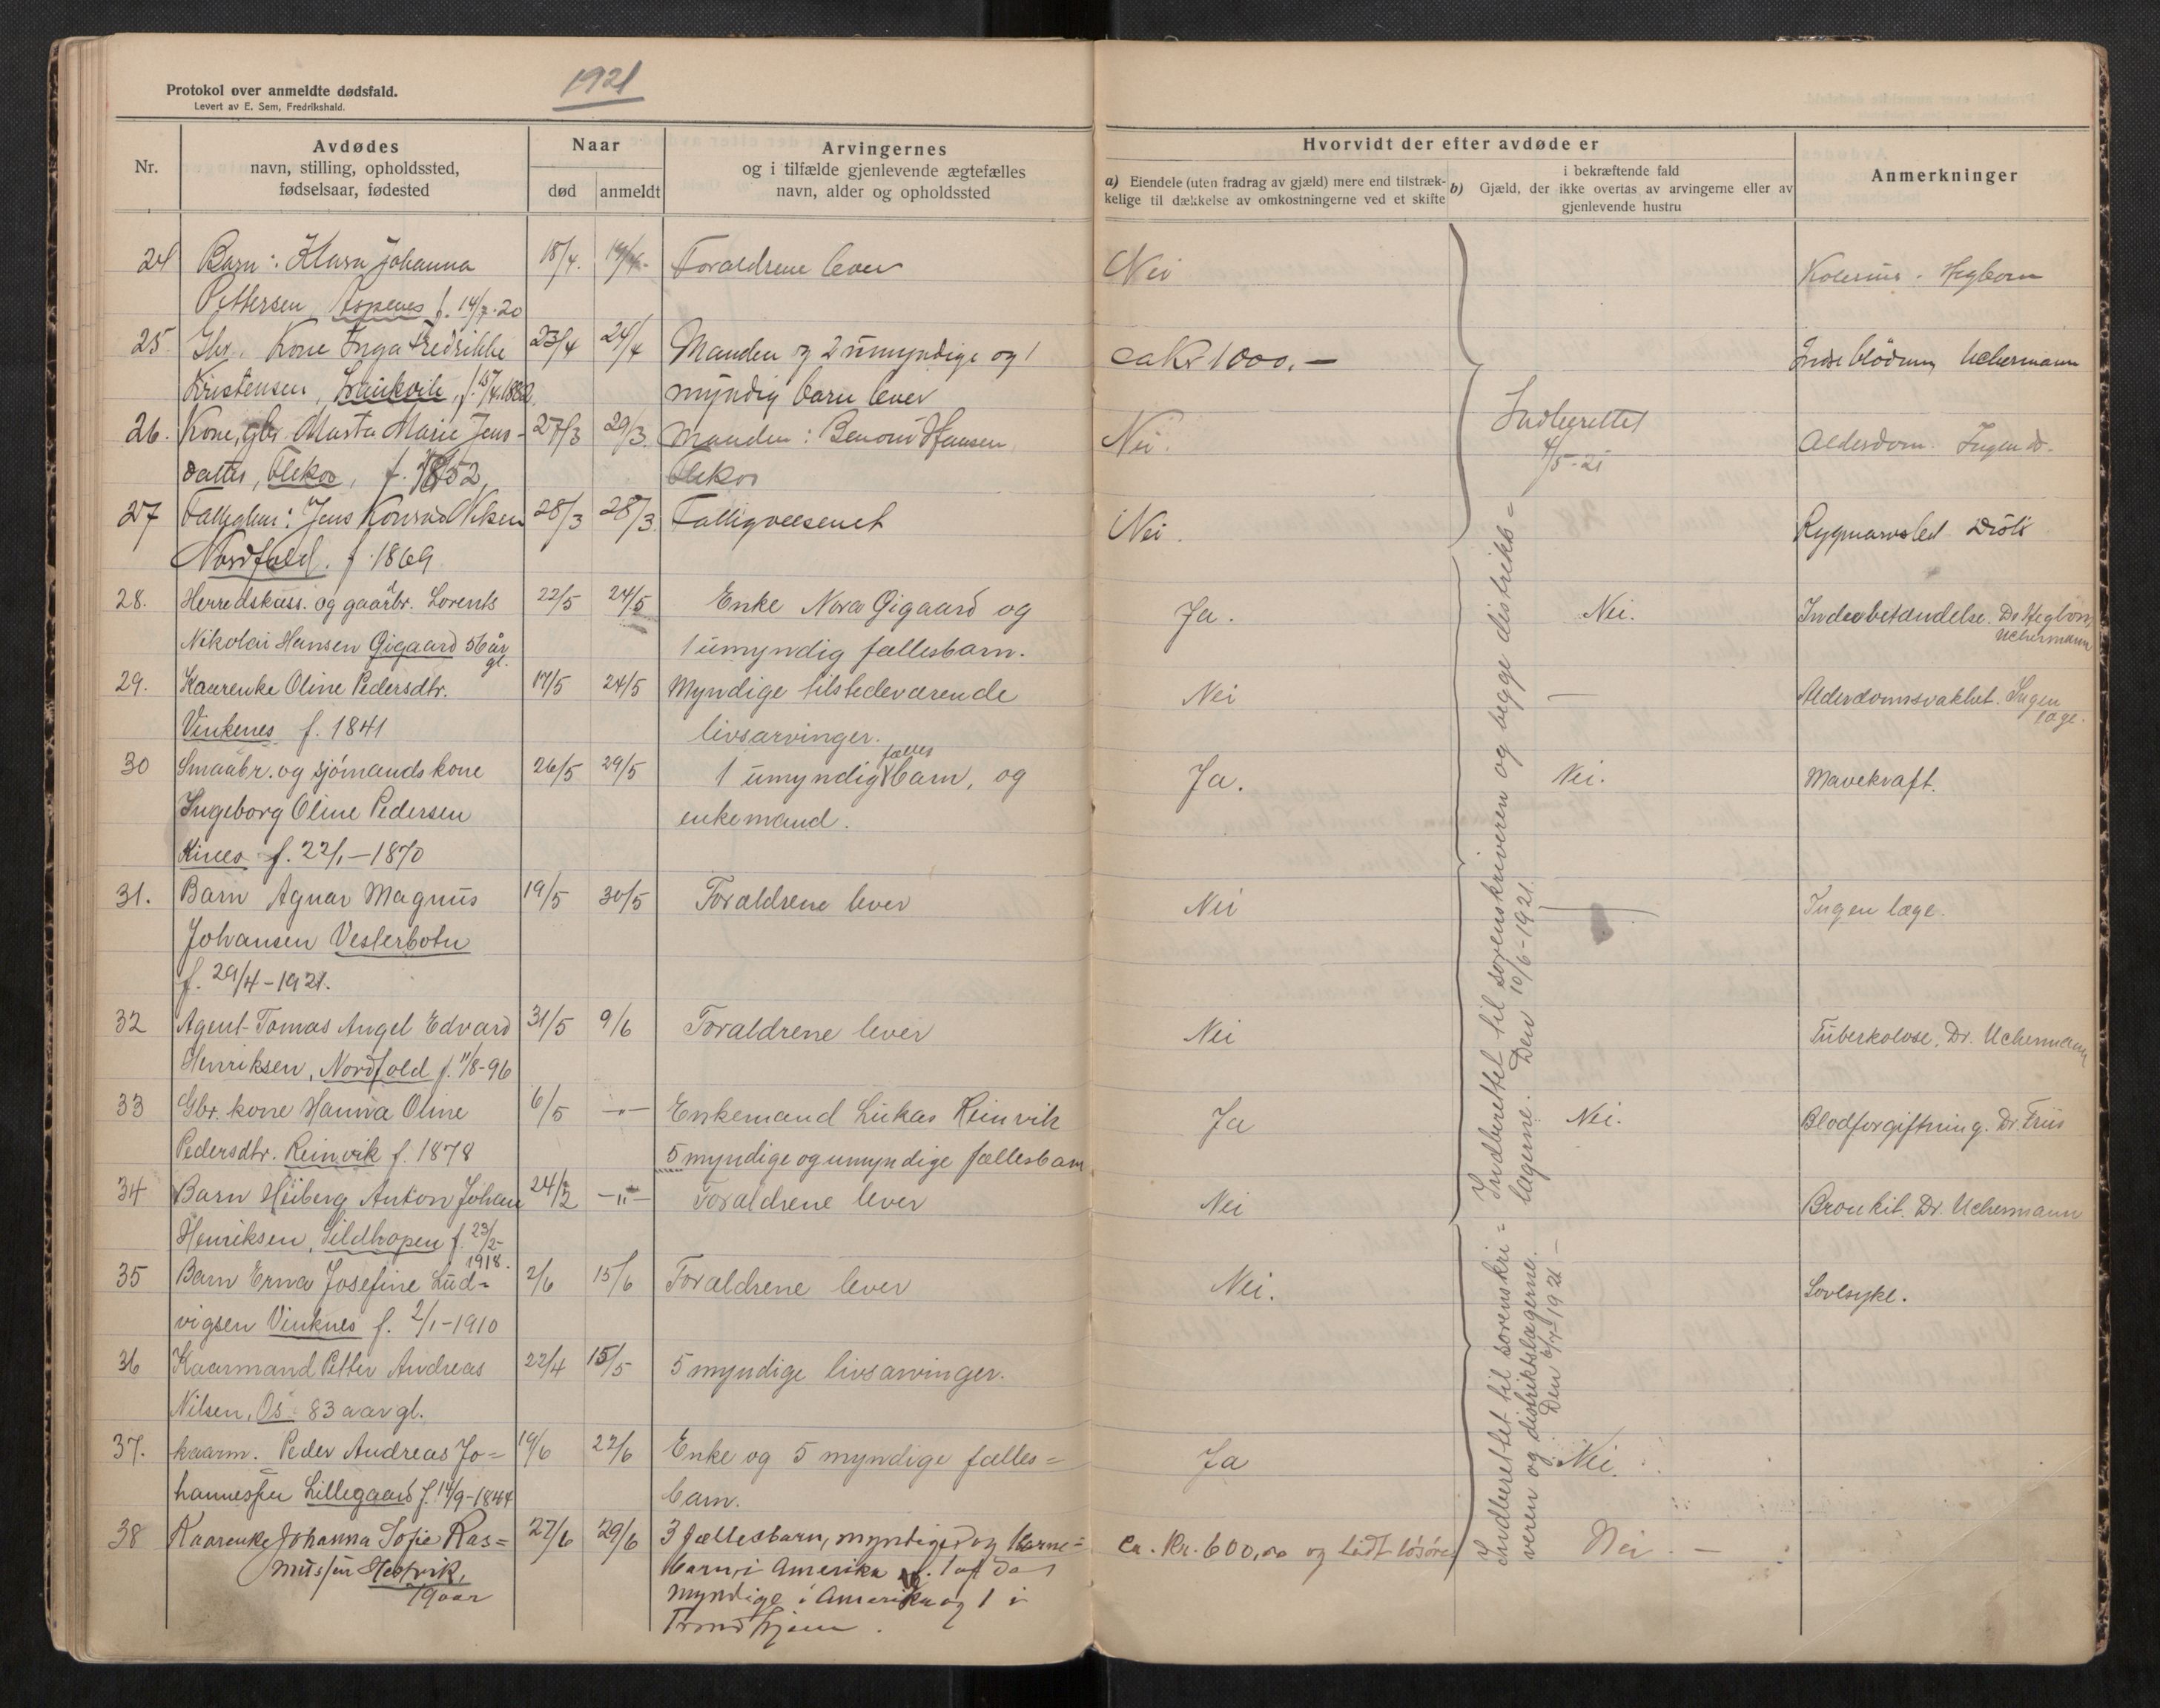 Protokol over anmeldte dødsfald.
Levert av E. Sem, Fredrikshald.
1921
Nr.
Avdødes
navn, stilling, opholdssted,
fødselsaar, fødested
Naar
død
anmeldt
Arvingernes
og i tilfælde gjenlevende ægtefælles
navn, alder og opholdssted
Hvorvidt der efter avdøde er
a) Eiendele (uten fradrag av gjæld) mere end tilstræk-
kelige til dækkelse av omkostningerne ved et skifte
i bekræftende fald
b) Gjæld, der ikke overtas av arvingerne eller av
gjenlevende hustru
Anmerkninger
24 Barn: Klara Johanna 18/4. Foraldrene lever Nei Hegbom
Pettersen, Aspenes f. 14/7-20
25. Gbr. Kone Inga Fredrikke 23/4 24/4 Manden og 2 umyndige og 1 ca Kr 1000.- Indre blødning Uchermann
Kristensen, f. 15/4.1882 myndig barn lever
26. Kone, gbr Marta Marie Jens- 27/3 29/3. Manden: Benoni Hansen Nei. Indberettet Alderdom. Ingen dr.
datter, f. 1852, 4/5-21
27 Jens Konrad Nilsen 28/3 28/3. Fattigvæsenet Nei. Rygmarvslid
Nordfold. f 1869
28. Herredskass. og gaarbr. Lorents 22/5 24/5 Enke Nora Gigaard og Ja. Nei. Dr Hegbom,
Uchermann
Nikolai Hansen Gigaard 56 år 1 umyndig fællesbarn.
gl.
29. Kaarenke Oline Pedersdtr. 17/5 24/5 Myndige tilstedeværende Nei — Alderdomsvakhet. Ingen
læge.
Vinkenes f. 1841 livsarvinger.
30 Smaabr. og sjømands kone 26/5 29/5 1 umyndig fælles barn, og Ja. Nei. Mavekræft.
Ingeborg Oline Pedersen enkemand.
Kines f. 22/1-1870
31. Barn Agnar Magnus 19/5 30/5 Foraldrene lever Nei — Ingen læge.
Johansen Vesterbotn
f. 29/4-1921.
32 Agent Tomas Angel Edvard 31/5 9/6 Foraldrene lever Nei Tuberkolose. Dr. Uchermann
Henriksen, Nordfold f. 11/8-96
33 Gbr. kone Hanna Oline 6/5 -"- Enkemand Lukas Reinvik Ja Nei. Blodforgiftning. Dr. Friis
Pedersdtr. Reinvik f. 1878 5 myndige og umyndige fællesbarn
34 Barn Heiberg Anton Johan -"- Foraldrene lever Nei Bronkit. Dr. Uchermann
Henriksen, Sildhopen f. 23/2-
1918.
35 Barn Erna Josefine Lud= 2/6 15/6 Foraldrene lever Nei. Sovesyke.
vigsen Vinknes f. 2/1-1910
36 Kaarmand Petter Andreas 22/4 15/5 5 myndige livsarvinger.
Nilsen, Os 83 aar gl.
37. kaarm. Peder Andreas Jo= 19/6 22/6 Enke og 5 myndige fælles= Ja Nei.
hannessen Lillegaard f. 14/9-1844 barn.
38 Kaarenke Johanna Sofie Ras= 27/6 29/6 3 fællesbarn, myndige og Barne= ca. Kr. 600,00 og lidt løsøre Nei. —
mussen Hestvik, barn i Amerika
79 aar myndige i Amerika og 1 i
Trondhjem.
Indberettet til sorenskriveren og begge distriks=
lægerne. Den 10/6-1921.
Indberettet til sorenskri=
veren og distriktslægerne.
Den 6/7-1921 —